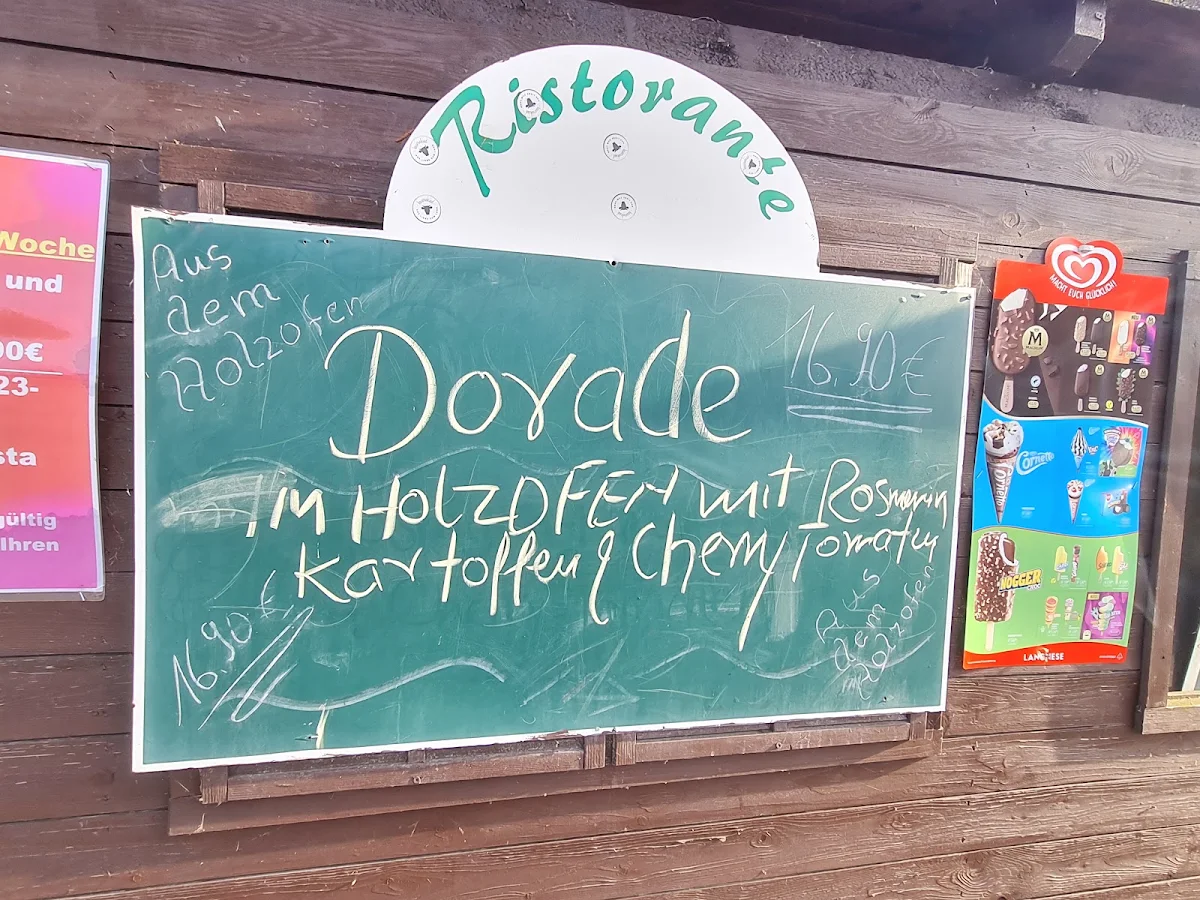 Ristorante
Aus
dem
Holzofen
Dorade
16,90 €
IM HOLZOFEN mit Rosmarin
kartoffen & Cherry Tomaten
16.90 €
Aus
dem
Holzofen
Woche
und
00€
23-
sta
gültig
Ihren
MACHT EUCH GLÜCKLICH
M
Cornetto
NOGGER
LANGNESE